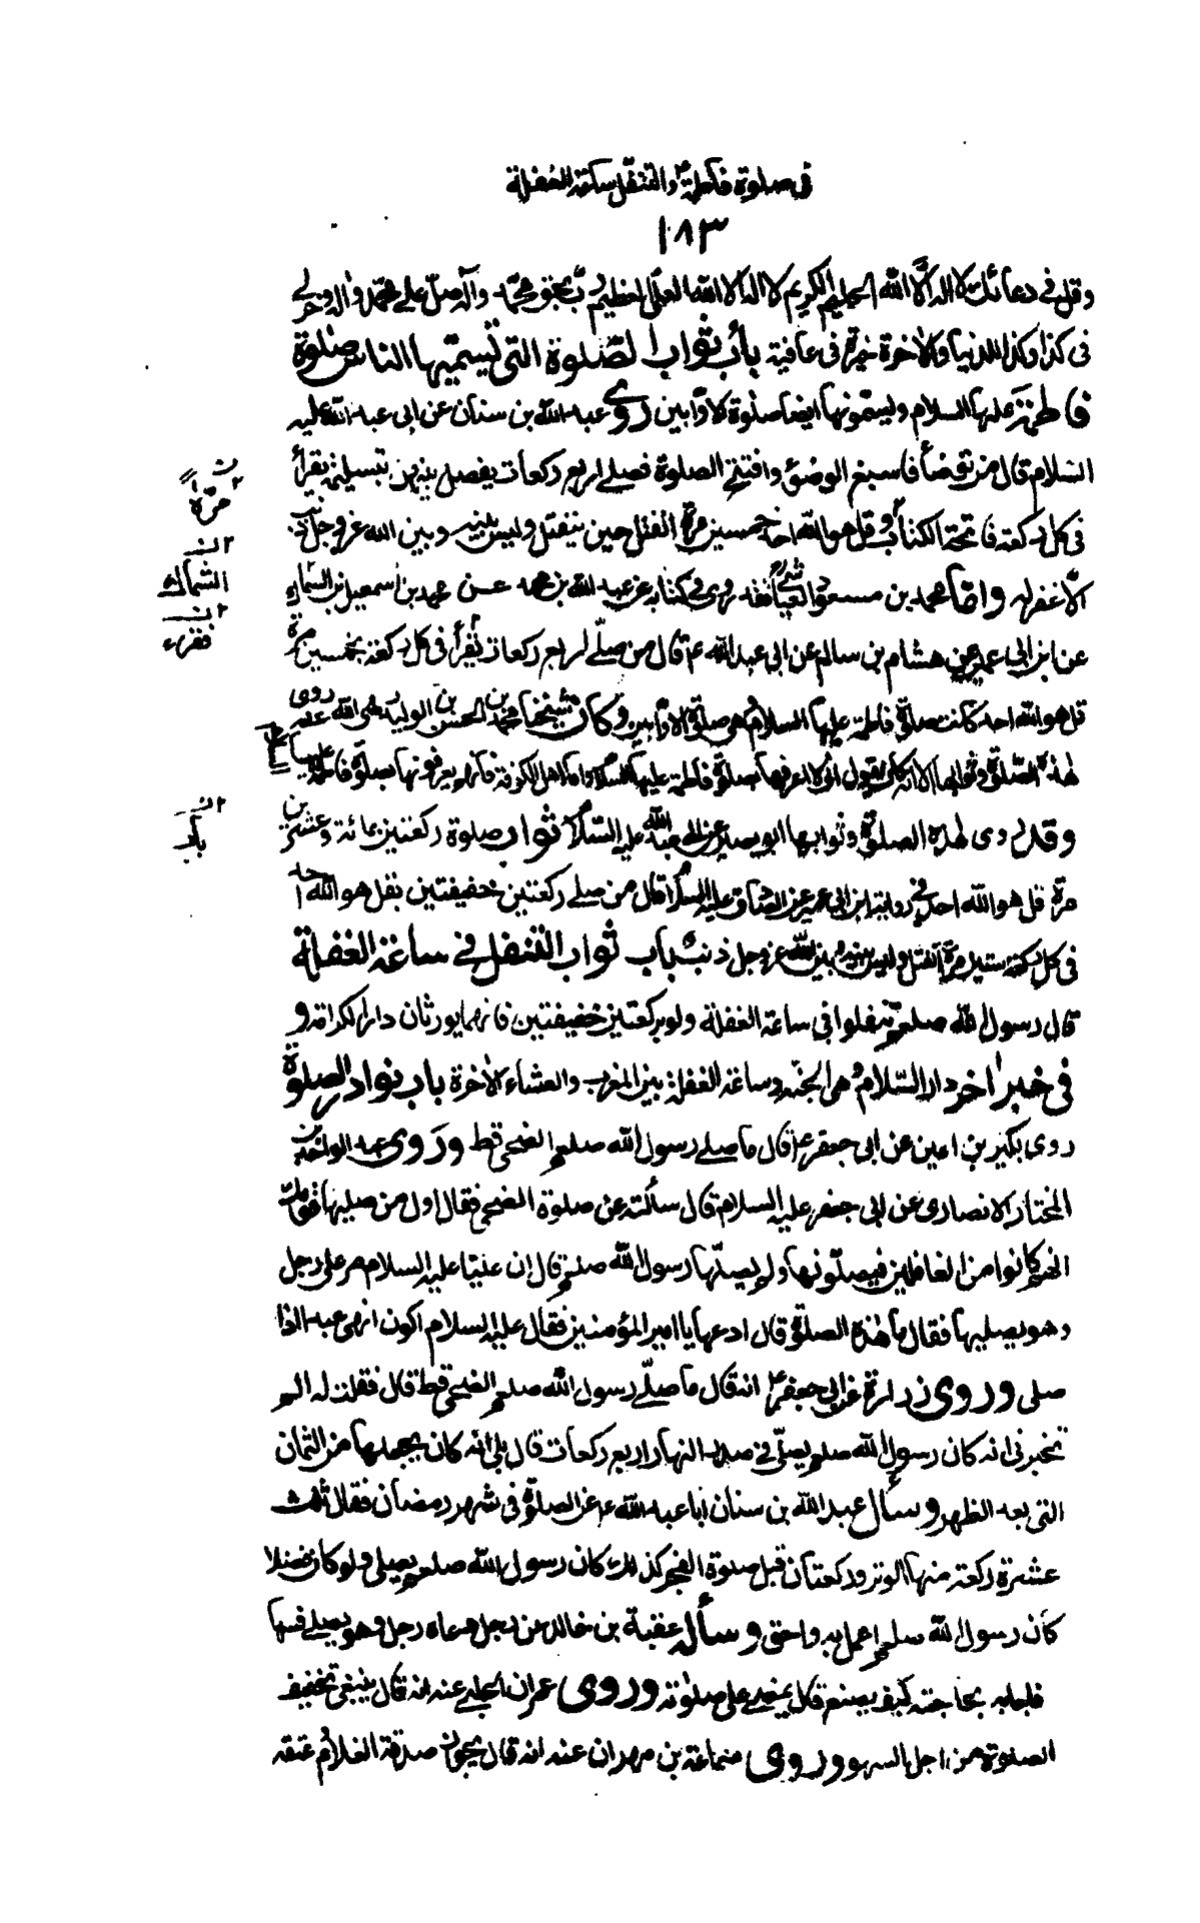 فی صلوة فاطمة ع والتنفل ساعة الغفلة
١٨٣
وقل فی دعائك لا اله الا الله الحليم الكريم لا اله الا الله العلی العظيم رب بحق محمد وآله صل علی محمد واله وخر لی
فی كذا وكذا للدنيا والاخرة خيرة فی عافية باب ثواب الصلوة التی تسميها الناس صلوة
فاطمة عليها السلام ويسمونها ايضا صلوة الاوابين روی عبد الله بن سنان عن ابی عبد الله عليه
السلام قال من توضأ فاسبغ الوضوء وافتتح الصلوة فصلی اربع ركعات يفصل بينهن بتسليمة يقرأ
فی كل ركعة فاتحة الكتاب وقل هو الله احد خمسين مرة انفتل حين ينفتل وليس بينه وبين الله عز وجل ذنب
الا غفر له واما محمد بن مسعود العياشی فقد روی فی كتابه عن عبد الله بن محمد عن محمد بن اسمعيل بن السماك
عن ابن ابی عمير عن هشام بن سالم عن ابی عبد الله ع قال من صلی اربع ركعات يقرأ فی كل ركعة بخمسين مرة
قل هو الله احد كانت صلوة فاطمة عليها السلام وهی صلوة الاوابين وكان شيخنا محمد بن الحسن بن الوليد رضی الله عنه يروی
هذه الصلوة وثوابها الا انه كان يقول انی لا اعرفها بصلوة فاطمة عليها السلام واما اهل الكوفة فانهم يعرفونها بصلوة فاطمة عليها
وقد روی هذه الصلوة وثوابها ابو بصير عن ابی عبد الله عليه السلام ثواب صلوة ركعتين بمائة وعشرين
مرة قل هو الله احد فی رواية ابن ابی عمير عن الصادق عليه السلام قال من صلی ركعتين خفيفتين بقل هو الله احد
فی كل ركعة ستين مرة انفتل وليس بينه وبين الله عز وجل ذنب باب ثواب التنفل فی ساعة الغفلة
قال رسول الله صلعم تنفلوا فی ساعة الغفلة ولو بركعتين خفيفتين فانهما يورثان دار الكرامة و
فی خبر اخر دار السلام وهی الجنة وساعة الغفلة بين المغرب والعشاء الاخرة باب نوادر الصلوة
روی بكير بن اعين عن ابی جعفر ع قال ما صلی رسول الله صلعم الضحی قط وروی عبد الواحد بن
المختار الانصاری عن ابی جعفر عليه السلام قال سألته عن صلوة الضحی فقال اول من صليها قومك
انهم كانوا من الغافلين فيصلونها ولم يصلها رسول الله صلعم قال ان عليا عليه السلام مر علی رجل
وهو يصليها فقال ما هذه الصلوة قال ادعها يا امير المؤمنين فقال عليه السلام اكون انهی عبدا اذا
صلی وروی زرارة عن ابی جعفر ع انه قال ما صلی رسول الله صلعم الضحی قط قال فقلت له الم
تخبرنی انه كان رسول الله صلعم يصلی فی صدر النهار اربع ركعات قال بلی انه كان يجعلها من الثمان
التی بعد الظهر وسأل عبد الله بن سنان ابا عبد الله ع عن الصلوة فی شهر رمضان فقال ثلث
عشرة ركعة منها الوتر وركعتان قبل صلوة الفجر كذلك كان رسول الله صلعم يصلی ولو كان فضلا
كان رسول الله صلعم اعمل به واحق وسأله عقبة بن خالد عن رجل دعاه رجل وهو يصلی فسها
فاجابه بحاجته كيف يصنع قال يمضی علی صلوته وروی عمران الحلبی عنه انه قال ينبغی تخفيف
الصلوة من اجل السهو وروی سماعة بن مهران عنه انه قال يجوز صدقة الغلام وعتقه
مرة
السماك
فقد روی
باب